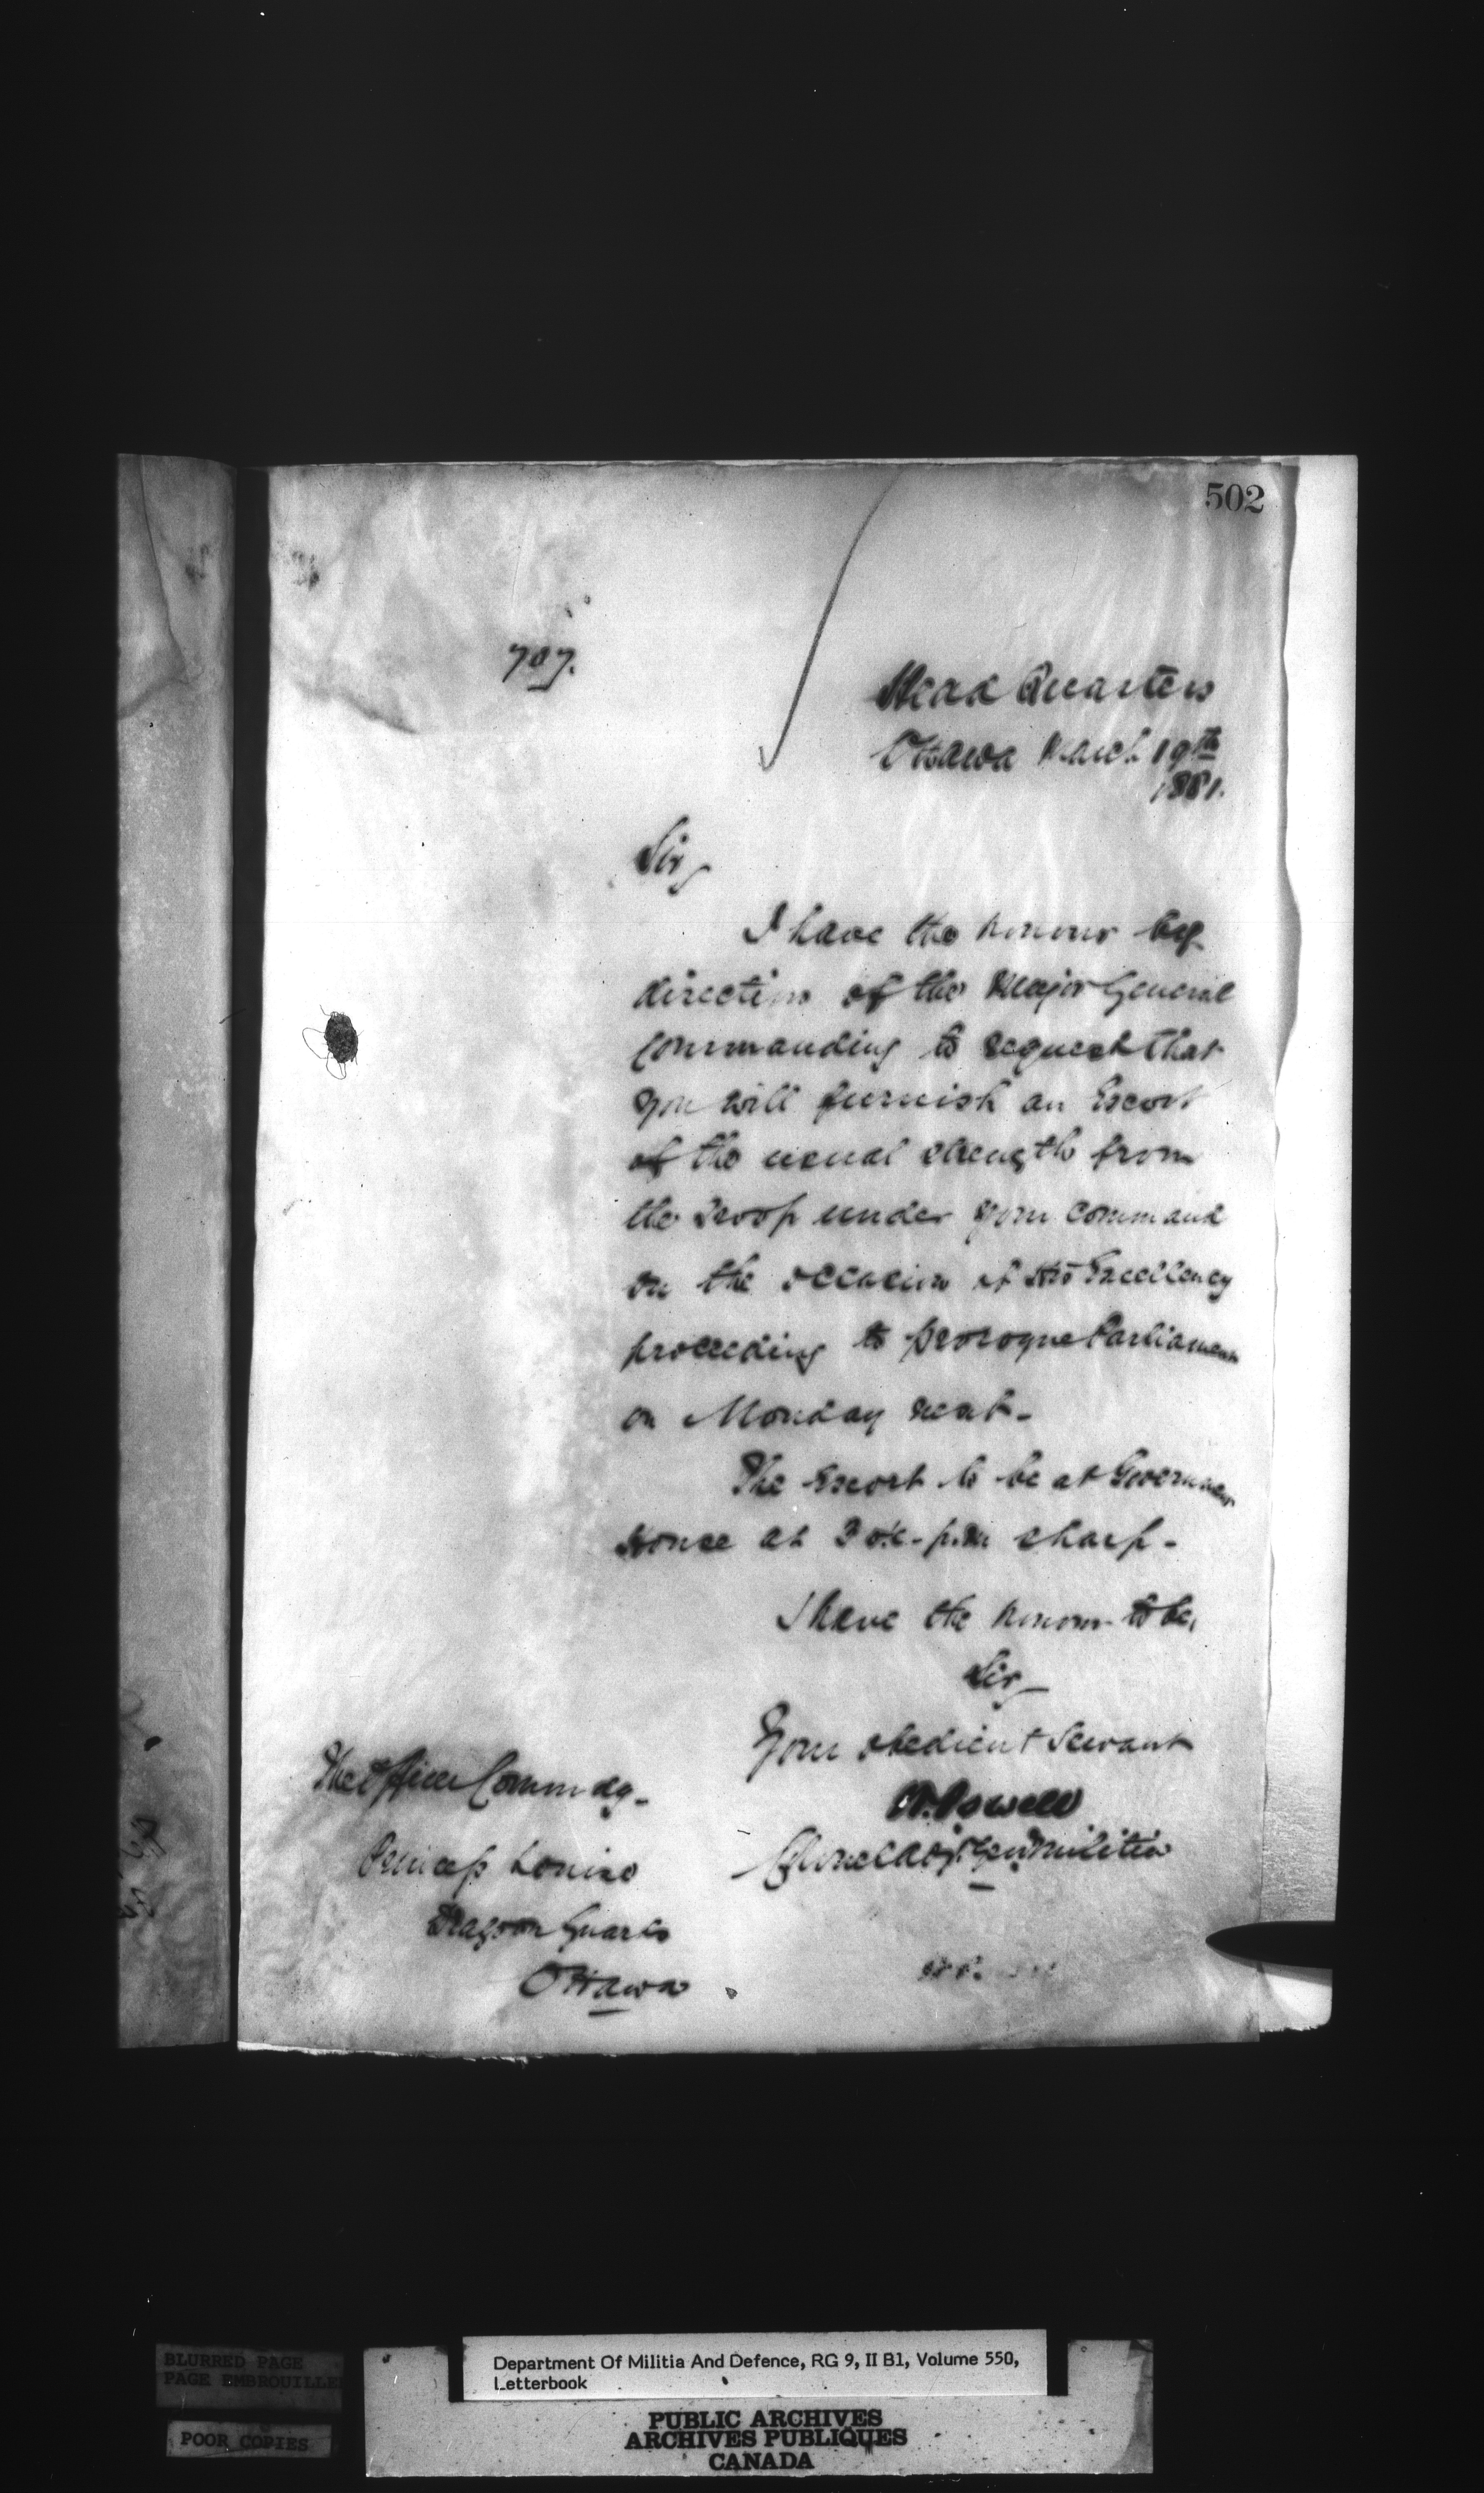 502
707.
Head Quarters
Ottawa March 19th
1881.
Sir,
I have the honour by
direction of the Major General
Commanding to request that
you will furnish an Escort
of the usual strength from
the Troop under your command
on the occasion of His Excellency
proceeding to prorogue Parliament
on Monday next -
The Escort to be at Government
House at 3 o'c. p.m sharp -
I have the honour to be,
Sir,
Your obedient Servant
W. Powell
Colonel Adjt. Genl. Militia
The Officer Commdg -
Princess Louise
Dragoon Guards
Ottawa
BLURRED PAGE
PAGE EMBROUILLEE
POOR COPIES
Department Of Militia And Defence, RG 9, II B1, Volume 550,
Letterbook
PUBLIC ARCHIVES
ARCHIVES PUBLIQUES
CANADA